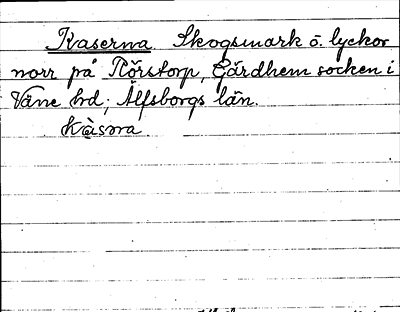 Kaserna. Skogsmark o. lyckor
norr på Rörstorp, Gärdhem socken i
Väne hrd; Älfsborgs län.